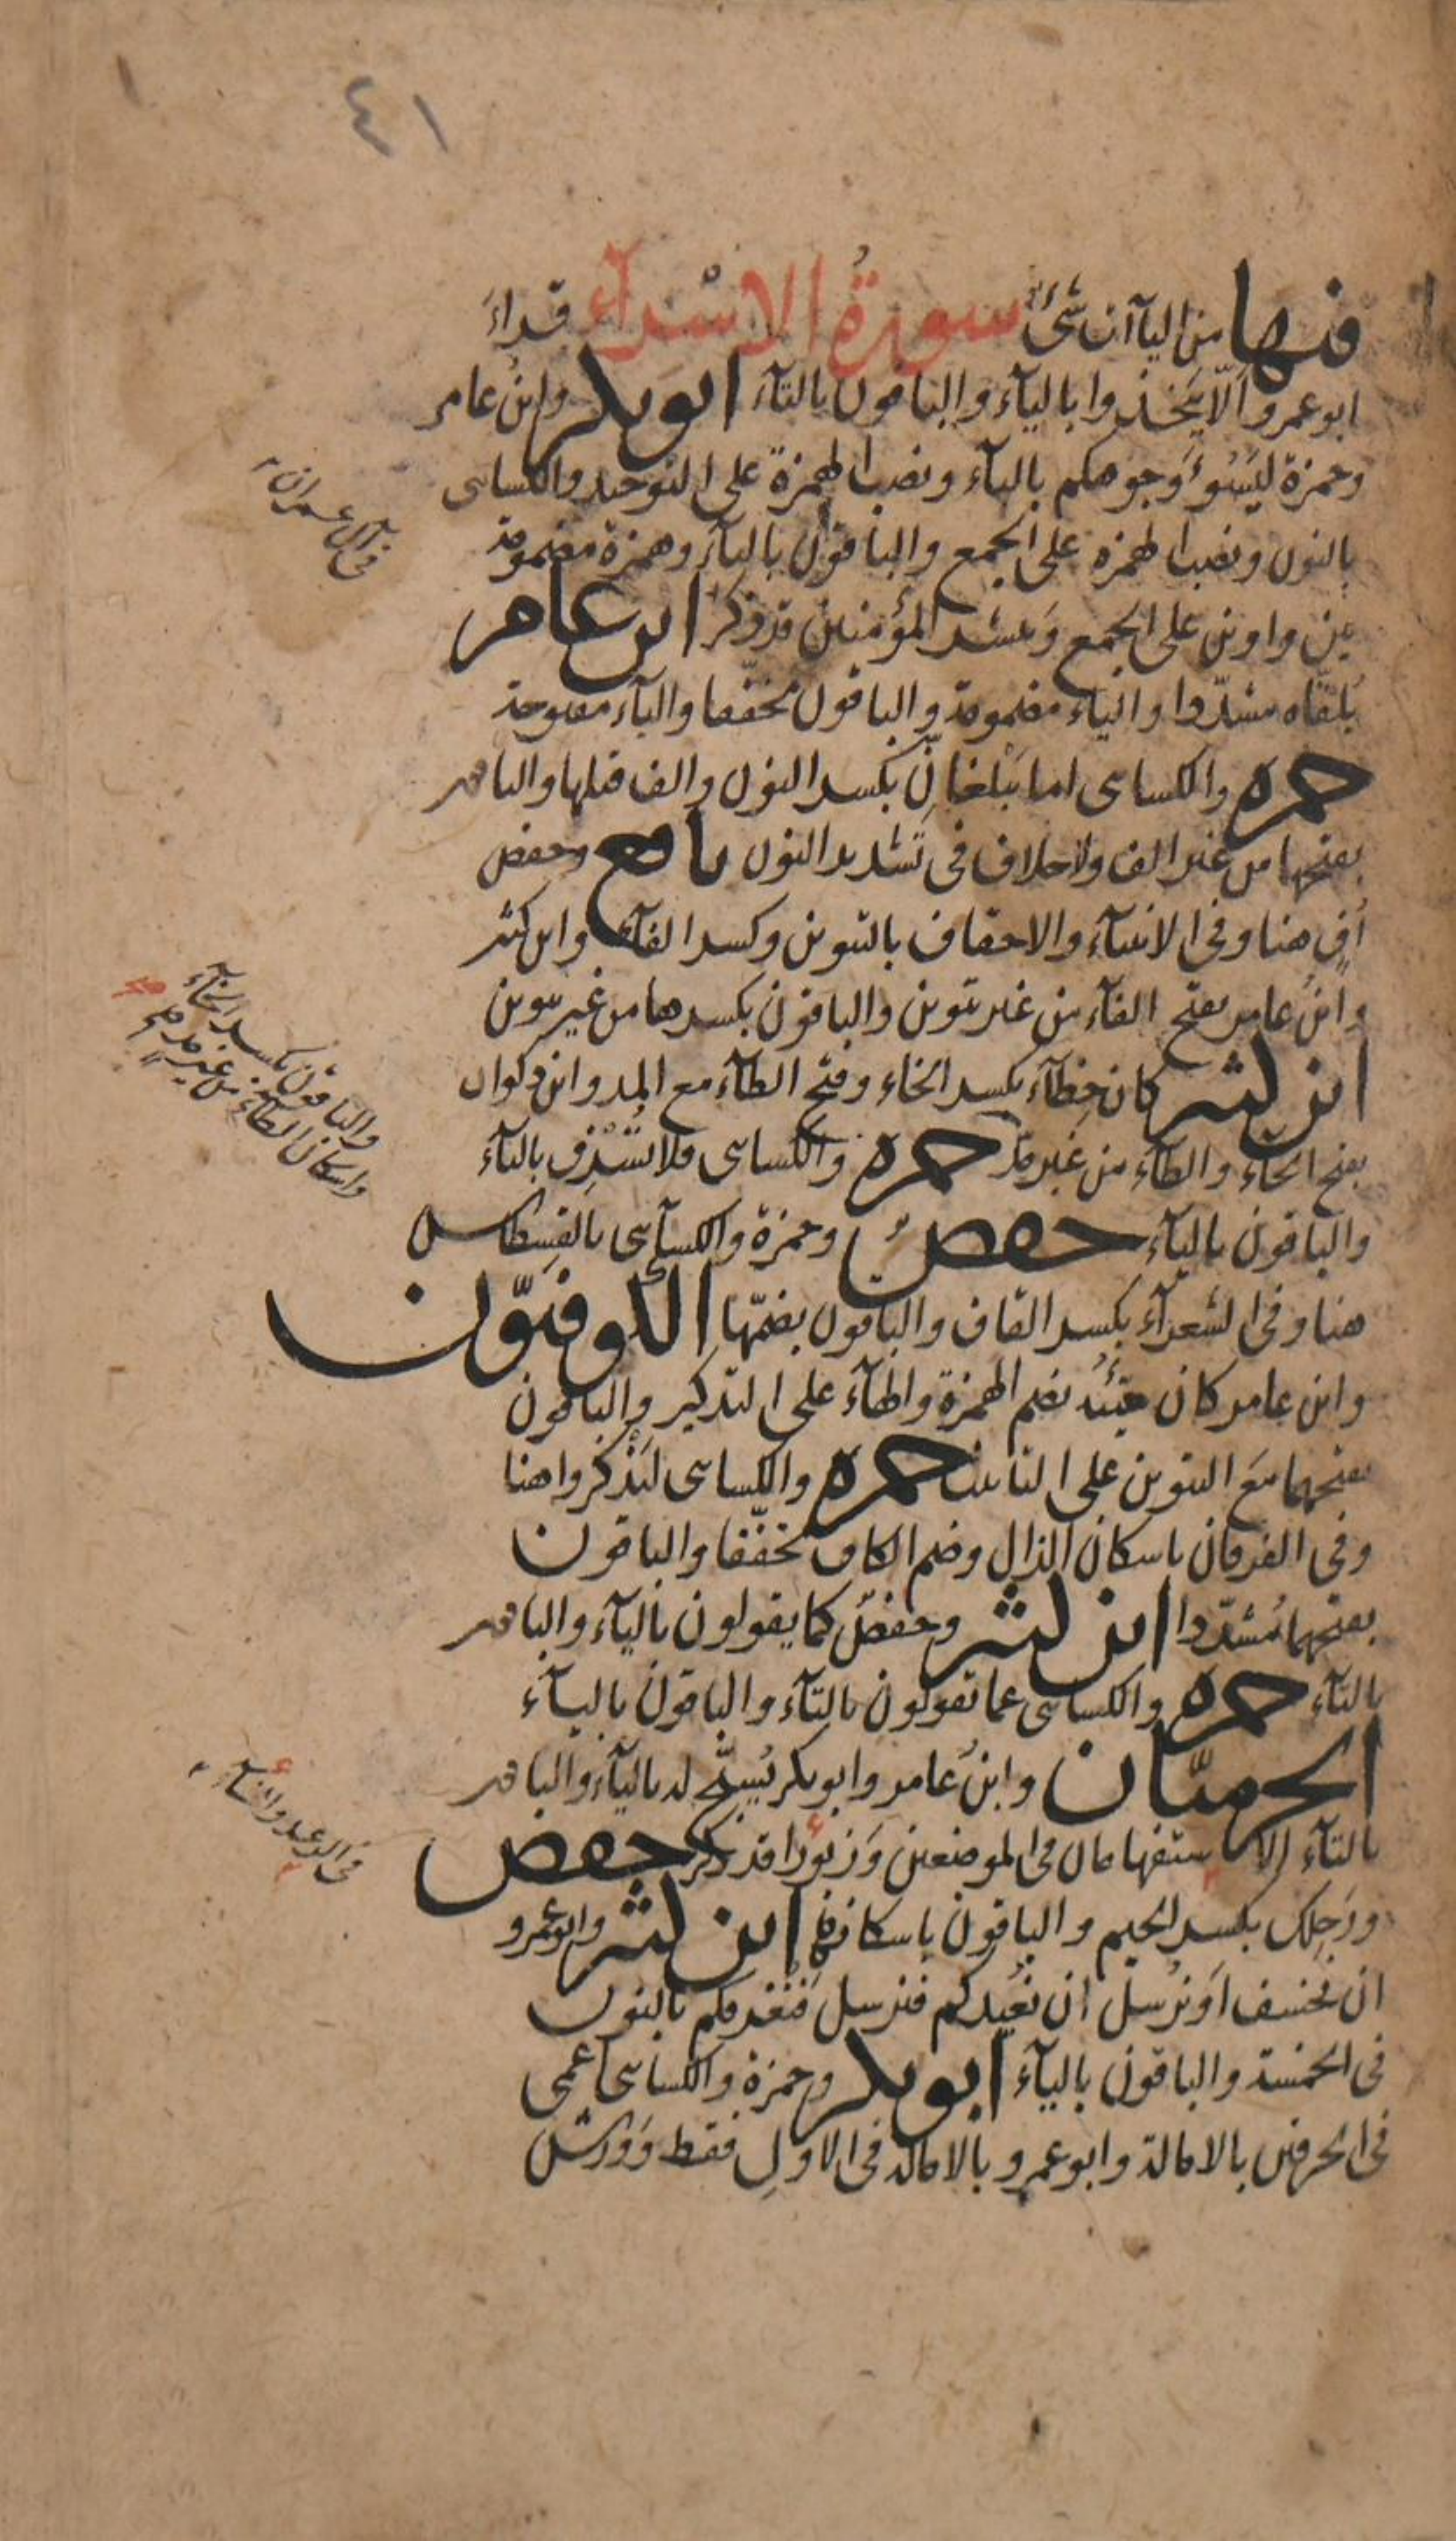 ٤١
فيها من اليآات شئ سورةُ الاسْرآء قراءَ
ابو عمرو اَلّا يَتّخذوا باليآء والباقون بالتآء ابو بكر وابنُ عامر
وحمزة ليَسُوءَ وجوهكم باليآء ونصب الهمزة على التوحيد والكسائى
بالنون ونصب الهمزه على الجمع والباقون باليآء وهمزة مضمومة
بين واوين على الجمع وَيبشر المؤمنين قد ذكر ابن عامر
يُلَقّاه مشدّدا والياء مضمومة والباقون مخفّفا واليآء مفتوحة
حمزه والكسائى اما يَبْلغانِّ بكسر النون والف قبلها والباقون
بفتحها من غير الف ولا خلاف فى تشديد النون نافع وحفص
اُفٍّ هنا وفى الانبيآء والاحقاف بالتنوين وكسر الفآء وابن كثير
وابنُ عامر بفتح الفآء من غير تنوين والباقون بكسرها من غير تنوين
ابن كثير كان خِطآء بكسر الخاء وفتح الطآء مع المد وابن ذكوان
بفتح الخآء والطآء من غير مد حمزه والكسائى فلا تُسْرِف بالتآء
والباقون باليآء حفصٌ وحمزة والكسآئى بالقِسطاس
هنا وفى الشعرآء بكسر القاف والباقون بضمّها الكوفيّون
وابن عامر كان سيّئُه بضم الهمزة والهآء على التذكير والباقون
بفتحهما مَعَ التنوين على التانيث حمزه والكسائى ليَذْكُروا هنا
وفى الفرقان باسكان الذال وضم الكاف مخفّفا والباقون
بفتحهما مُشدّدا ابن كثير وحفصٌ كما يقولون باليآء والباقون
بالتآء حمزه والكسائى عما تقولون بالتآء والباقون باليآء
الحرميّان وابنُ عامر وابو بكر يُسبّح له باليآء والباقون
بالتآء الاستفهامان فى الموضعين وَزبُورًا قد ذكر حفص
ورَجِلك بكسر الجيم والباقون باسكانها ابن كثير وابو عمرو
ان نخسف اَو نرُسل ان نُعيدكم فنرسل فَنُغرقكم بالنون
فى الخمسة والباقون باليآء ابو بكر وحمزة والكسائى اَعمى
فى الحرفين بالامالة وابو عمرو بالامالة فى الاولِ فقط وَوَرشٌ
فى آل عمران
والباقون بكسر الخآء
واسكان الطآء من غير مد صح
فى الرعد والنسآء